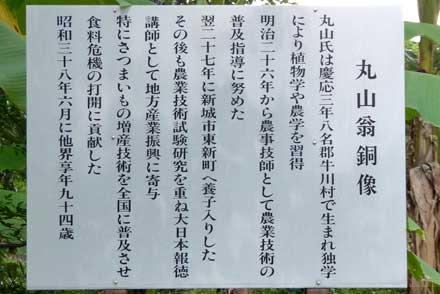 丸山翁銅像
丸山氏は慶応三年八名郡牛川村で生まれ独学
により植物学や農学を習得
明治二十六年から農事技師として農業技術の
普及指導に努めた
翌二十七年に新城市東新町へ養子入りした
その後も農業技術試験研究を重ね大日本報徳
講師として地方産業振興に寄与
特にさつまいもの増産技術を全国に普及させ
食料危機の打開に貢献した
昭和三十八年六月に他界享年九十四歳